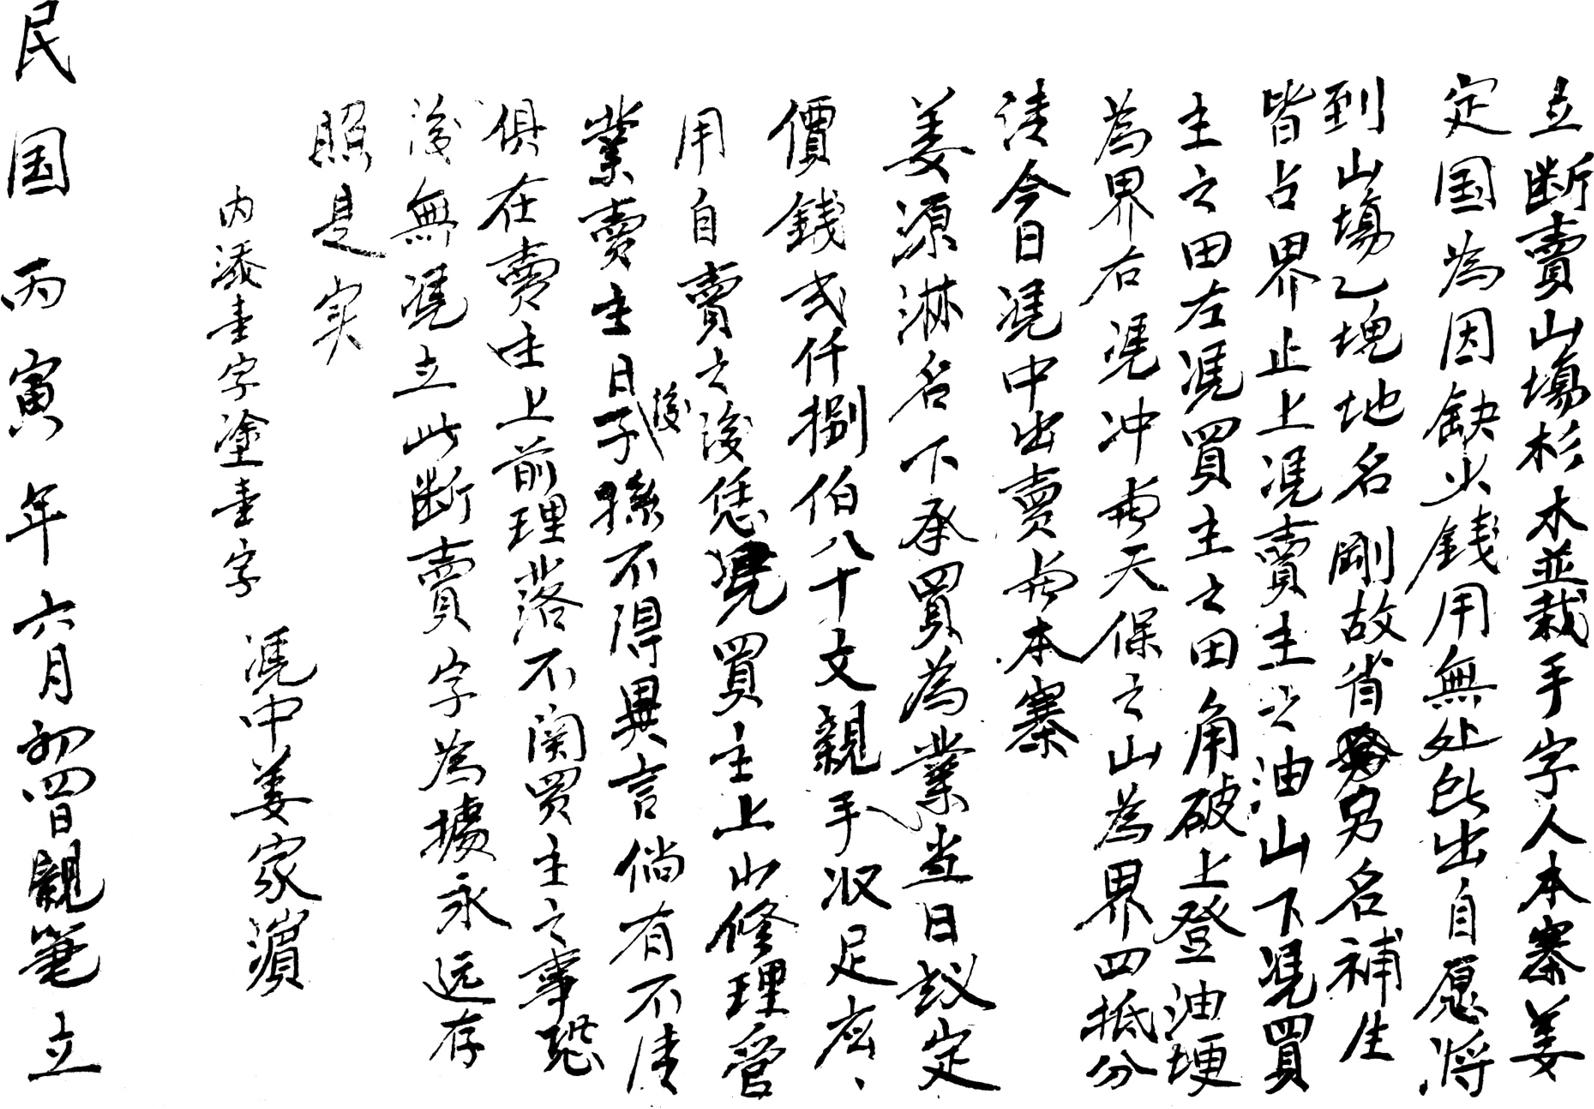 立断賣山塲杉木並栽手字人本寨姜
定国為因缺少錢用無处所出自愿将
到山塲乙塊地名剛故省另名補生
皆占界止上凴賣主之油山下凴買
主之田左凴買主之田角破上登油埂
為界右凴冲與天保之山為界四抵分
清今日凴中出賣與本寨
姜源淋名下承買為業当日議定
價錢弍仟捌伯八十文親手収足応、
用自賣之後恁凴買主上山修理管
業賣主日後子孫不得異言倘有不清
俱在賣主上前理落不関買主之事恐
後無凴立此断賣字為據永远存
照是实
内添壹字塗壹字
凴中姜家濵
民国丙寅年六月初四日親筆立